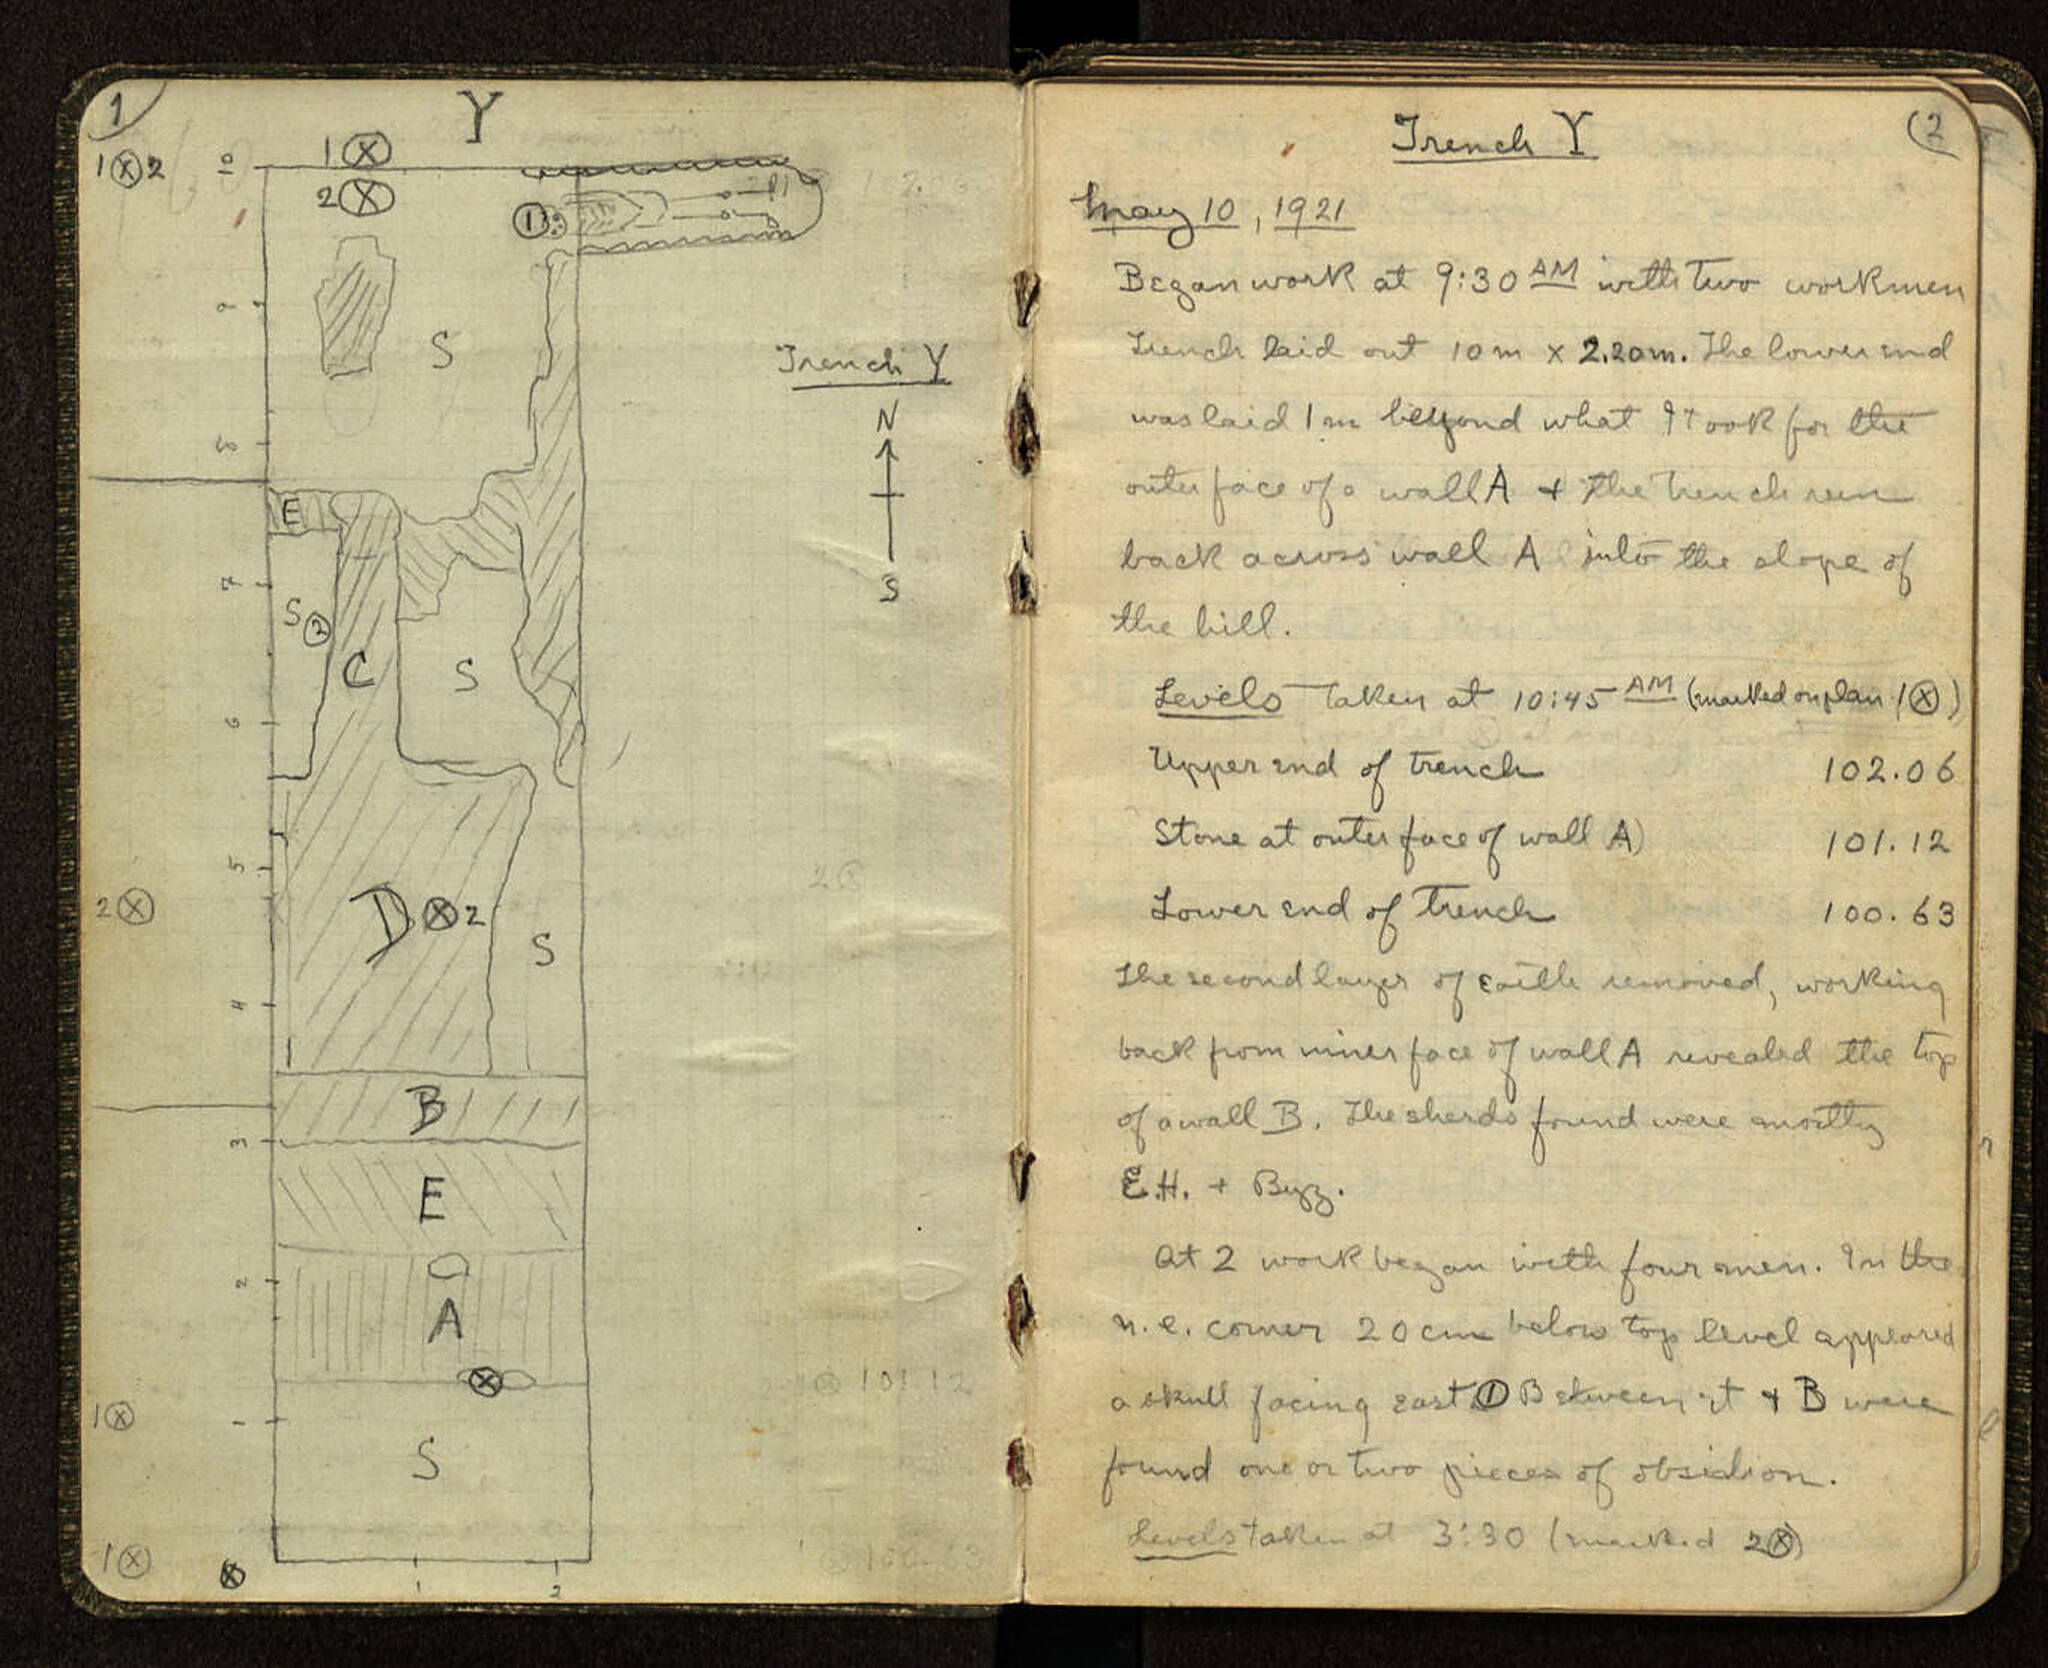 1
Y
1 ⊗ 2
10
1 ⊗
2 ⊗
①
9
S
Trench Y
8
N
E
7
S
S ②
C
S
6
5
2 ⊗
D ⊗ 2
S
4
B
3
E
2
A
⊗
101.12
1 ⊗
1
S
1 ⊗
⊗
100.63
1
2
Trench Y
(2
May 10, 1921
Began work at 9:30 AM with two workmen
Trench laid out 10 m x 2.20 m. The lower end
was laid 1 m beyond what I took for the
outer face of a wall A + the trench run
back across wall A into the slope of
the hill.
Levels taken at 10:45 AM (marked on plan 1 ⊗)
Upper end of trench 102.06
Stone at outer face of wall A) 101.12
Lower end of trench 100.63
The second layer of earth removed, working
back from inner face of wall A revealed the top
of a wall B. The sherds found were mostly
E.H. + Byz.
At 2 work began with four men. In the
n.e. corner 20 cm below top level appeared
a skull facing east ① Between it + B were
found one or two pieces of obsidion.
Levels taken at 3:30 (marked 2⊗)